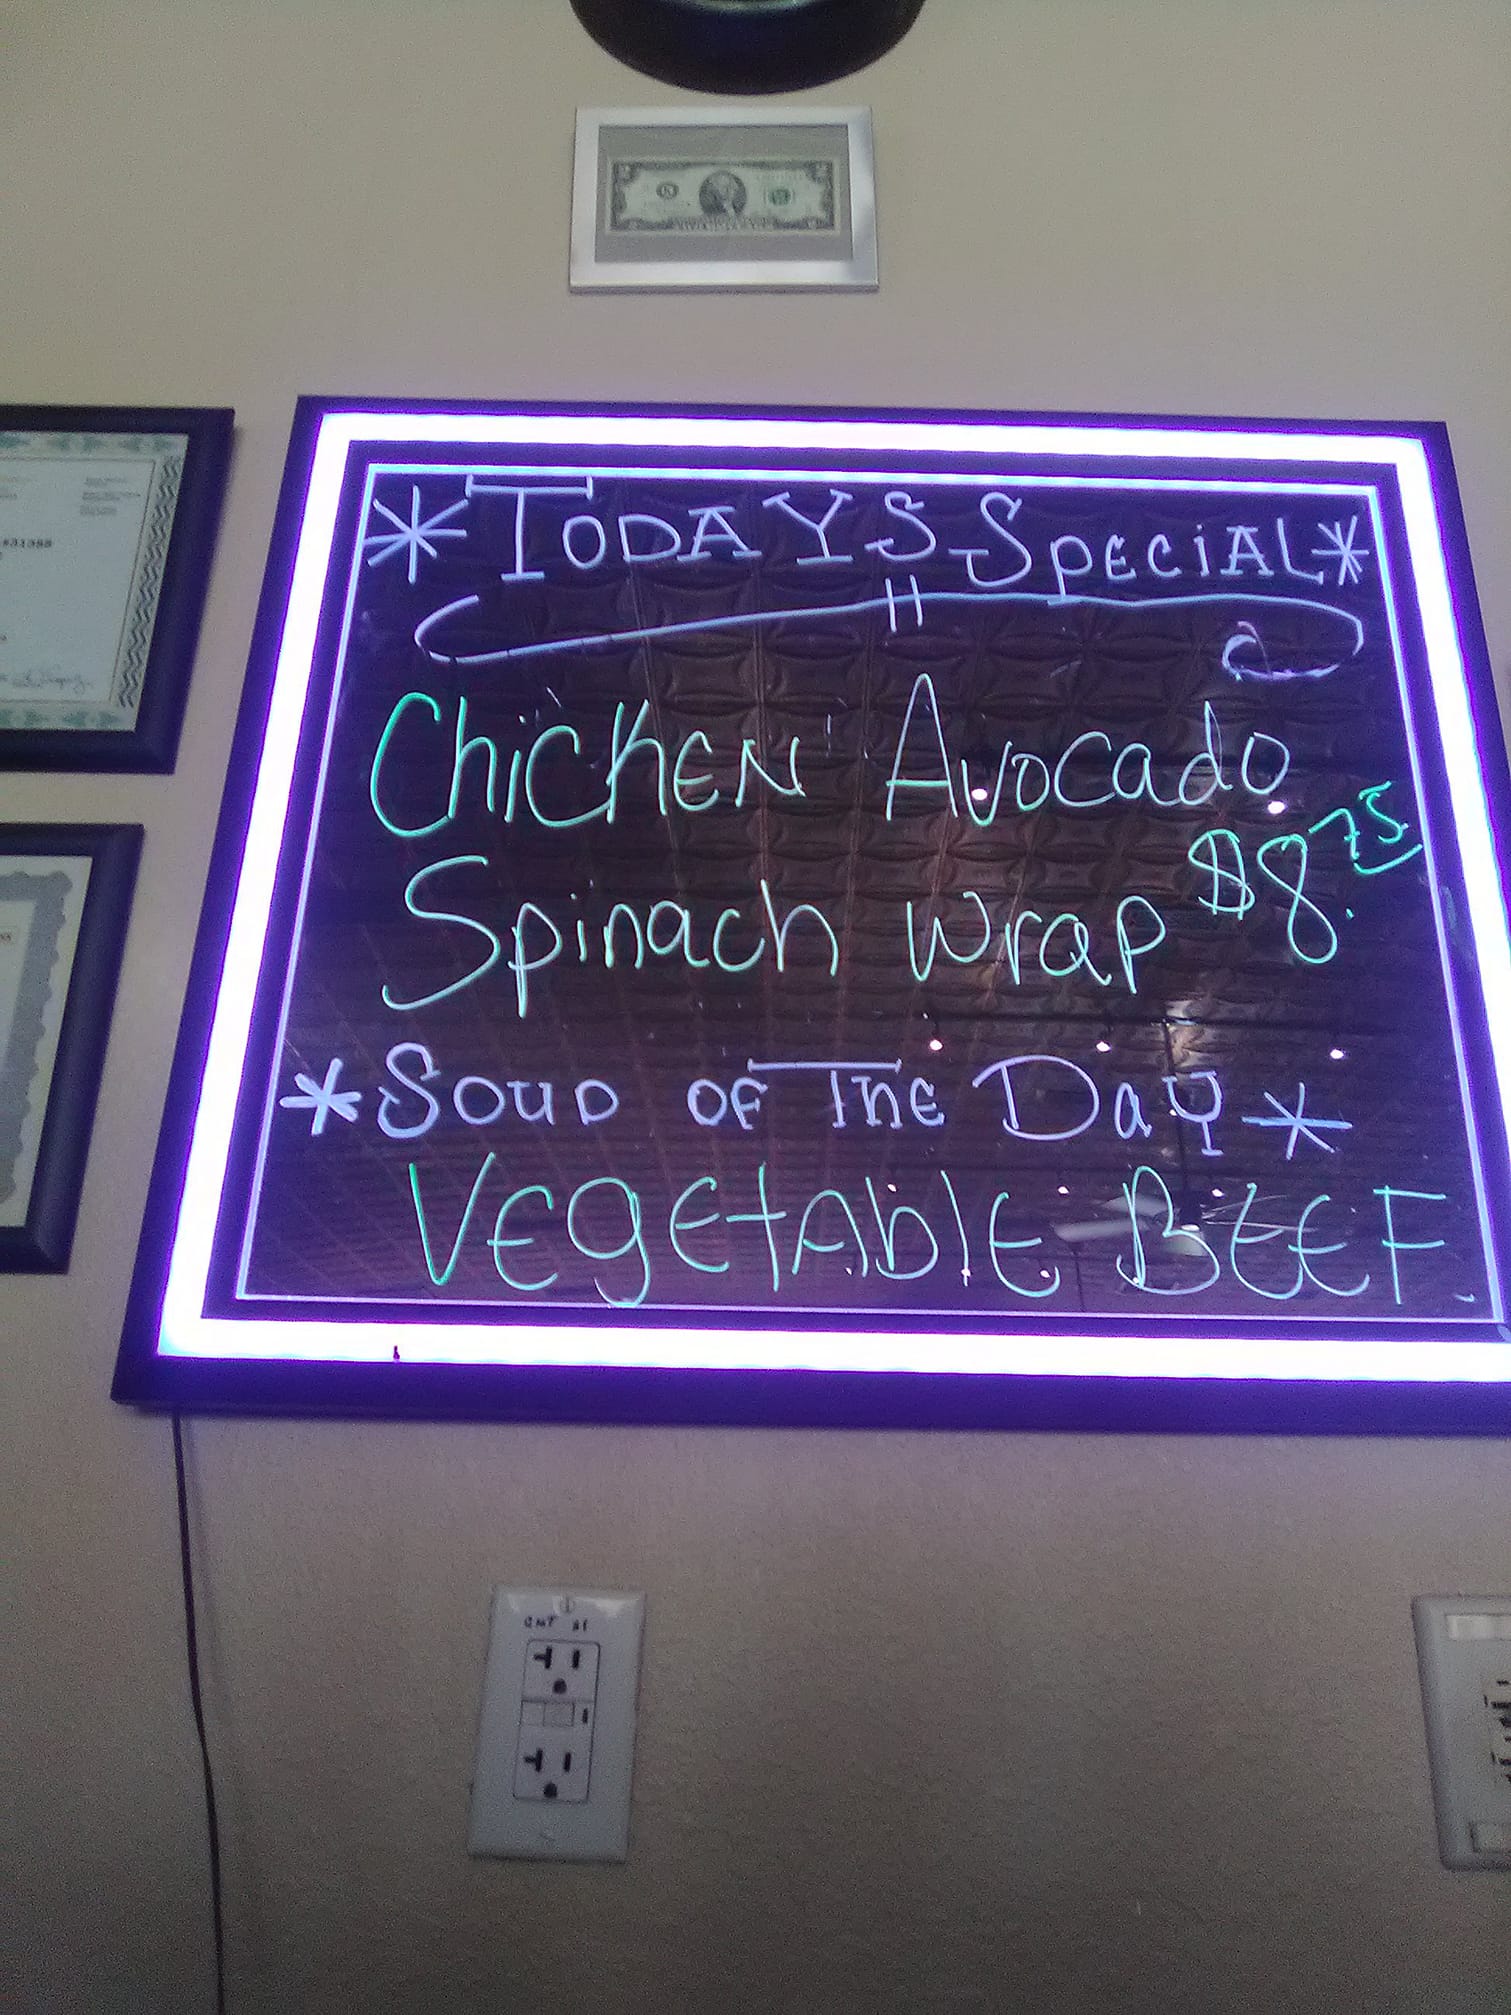 *TODAYS SPECIAL*
Chicken Avocado
Spinach Wrap $8.75
*Soup of The Day*
Vegetable Beef.